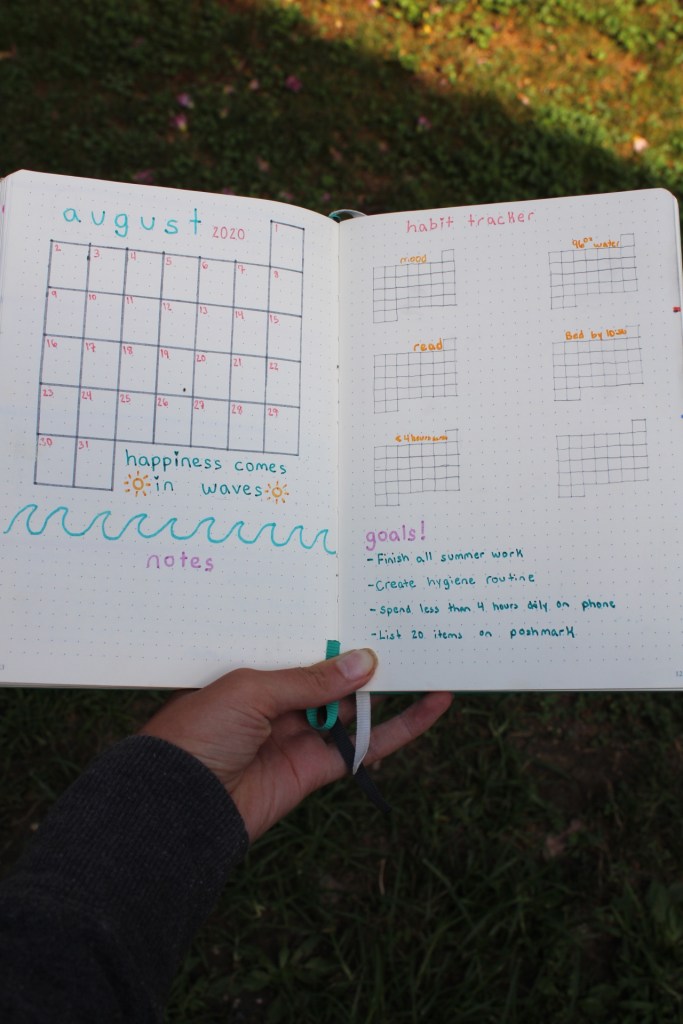 august 2020
1
2 3 4 5 6 7 8
9 10 11 12 13 14 15
16 17 18 19 20 21 22
23 24 25 26 27 28 29
30 31
happiness comes
in waves
notes
habit tracker
mood
96oz water
read
Bed by
4 hours
goals!
- Finish all summer work
- Create hygiene routine
- Spend less than 4 hours daily on phone
- List 20 items on poshmark